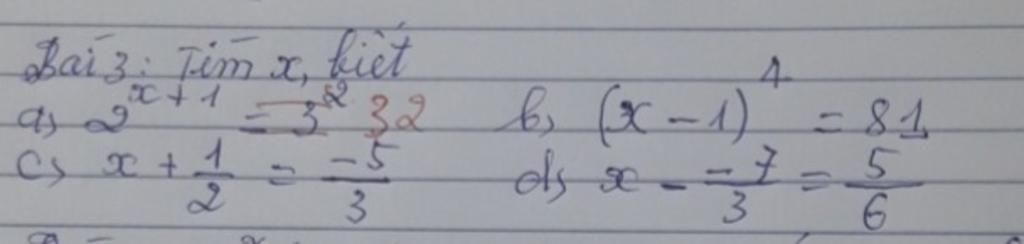 Bài 3: Tìm x, biết
a, 2^{x+1} = 3^2 32 b, (x - 1)^4 = 81
c, x + \frac{1}{2} = \frac{-5}{3} d, x - \frac{-7}{3} = \frac{5}{6}